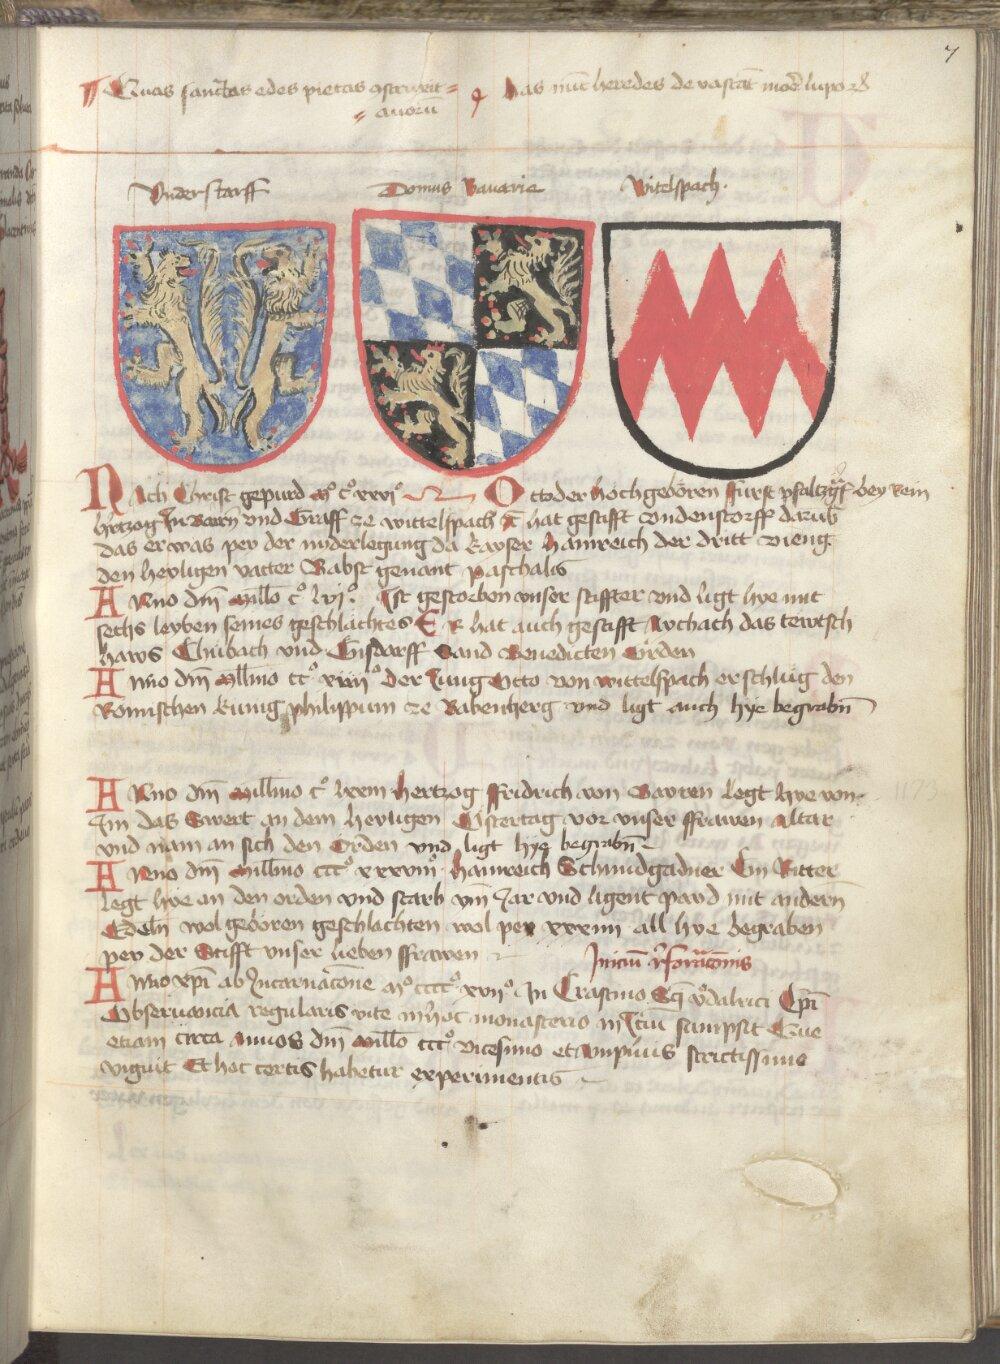 7
Quas sanctas edes pietas construxit = has nunc heredes devastant more luporum
= avorum
Understorff Domus Bavarie Witelspach.
Nach Christ gepurd Mº cº xxviº Otto der hochgeboren fürst pfaltzgraf bey Rein
hertzog In Bairn und Graff ze wittelspach hat gestifft undenstorff darub
Das er was pey der niderlegung da kayser hainreich der dritt vieng
den heyligen vatter Babst genant paschalis
Anno dm Millo cº lviº. Ist gestorben unser stiffter und ligt hye mit
sechs leyben seines geschlächtes Er hat auch gestifft Aychach das tewtsch
haws Chübach und Ensdorff Sand Benedicten Orden
Anno dm Mllmo ccº viiiº der Iung Otto von wittelspach erschlüg den
Römischen künig philippum ze Babenberg und ligt auch hye begrabn
Anno dm Millmo cº lxxiii hertzog ffridrich von Bayren legt hye von
Im das Swert an dem heyligen Ostertag vor unser ffrawen Altar
und nam an sich den Orden und ligt hye begrabn
Anno dm Millmo cccº xxxviiiº hainreich Schmidgadner Ein Ritter
legt hye an den orden und starb Im Jar und ligent paid mit andern
Edeln wol geboren geschlächten wol per xxxiiii all hye begraben
per der Stifft unser lieben ffrawen
Inicium reformacionis
Anno xpi ab Incarnacione Mº ccccº xviiº In Crastino Sci Udalrici Epi
Observancia regularis vite in hoc monasterio Iniciu sumpsit Que
etiam circa Annos dm Millo cccº vicesimo et amplius strictissime
viguit Et hoc certis habetur experimentis